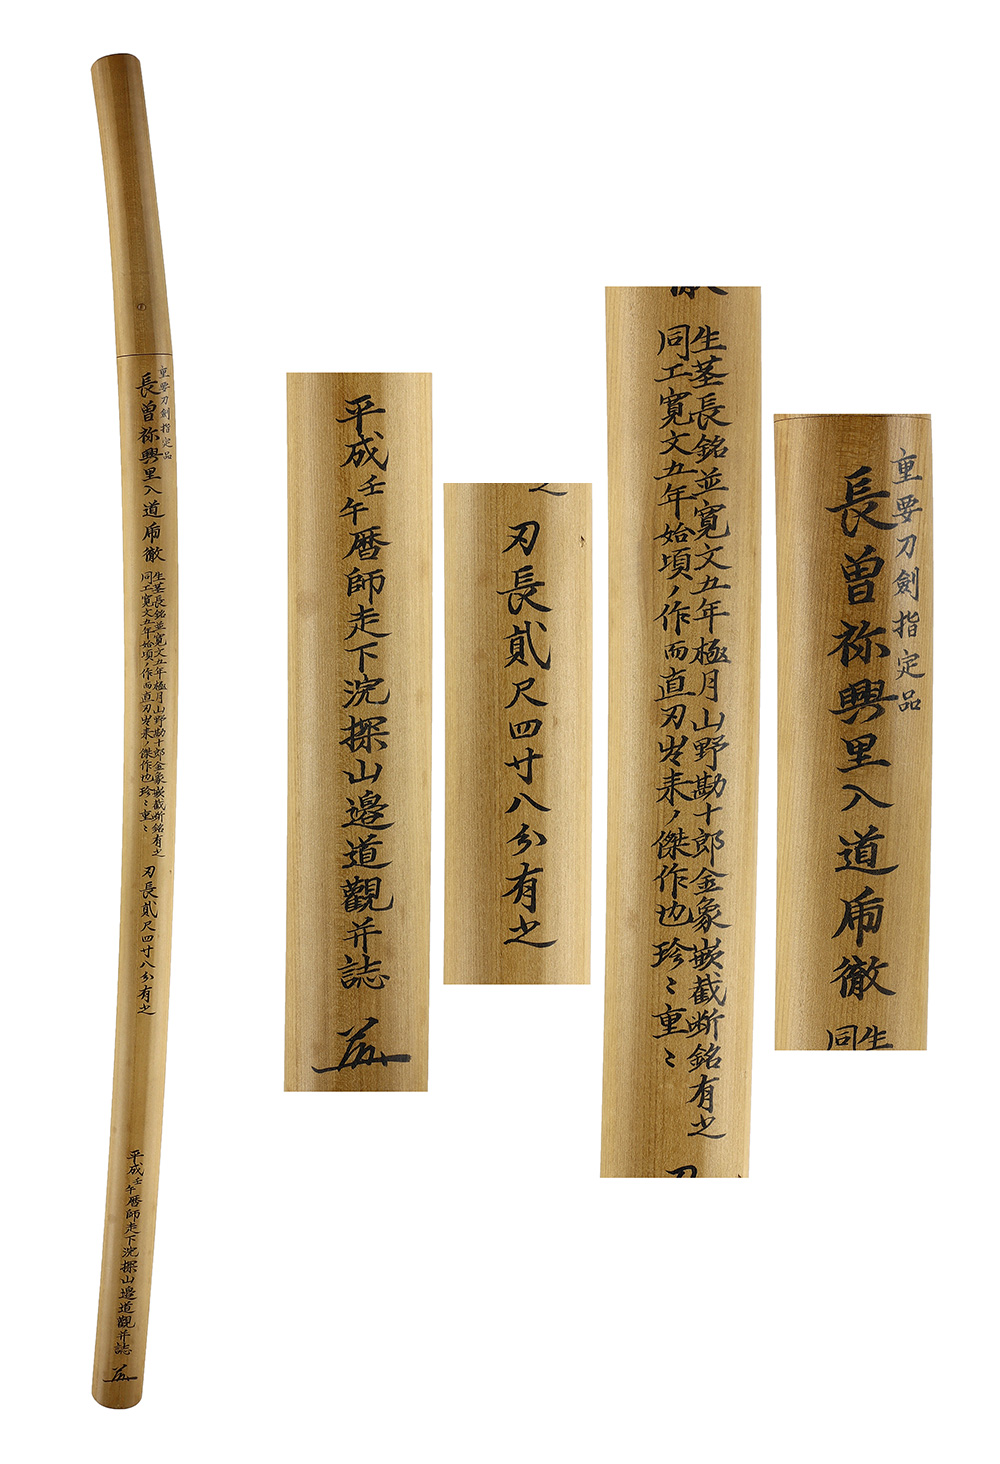 重要刀劍指定品
長曽祢興里入道乕徹
生茎長銘並寛文五年極月山野勘十郎金象嵌截断銘有之
同工寛文五年始頃ノ作而直刃出来ノ傑作也珍〻重〻
刃長貳尺四寸八分有之
平成壬午暦師走下浣探山邉道觀并誌
重要刀劍指定品
長曽祢興里入道乕徹
生
同
徹
生茎長銘並寛文五年極月山野勘十郎金象嵌截断銘有之
同工寛文五年始頃ノ作而直刃出来ノ傑作也珍〻重〻
刃
之
刃長貳尺四寸八分有之
平成壬午暦師走下浣探山邉道觀并誌